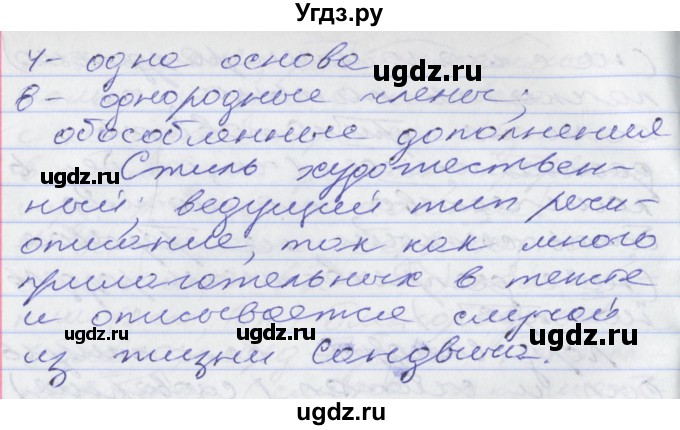 Угдз.ру
4- одна основа
ugdz.ru
8- однородные члены;
ugdz.ru
обособленные дополнения
Стиль художествен-
ugdz.ru
ный; ведущий тип речи-
описание, так как много
прилагательных в тексте
и описывается случай
ugdz.ru ugdz.ru
из жизни Сандвича.
ugdz.ru